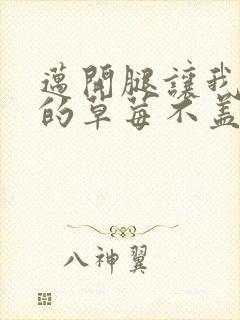 邁開腿讓我
的草莓不蓋
八神翼